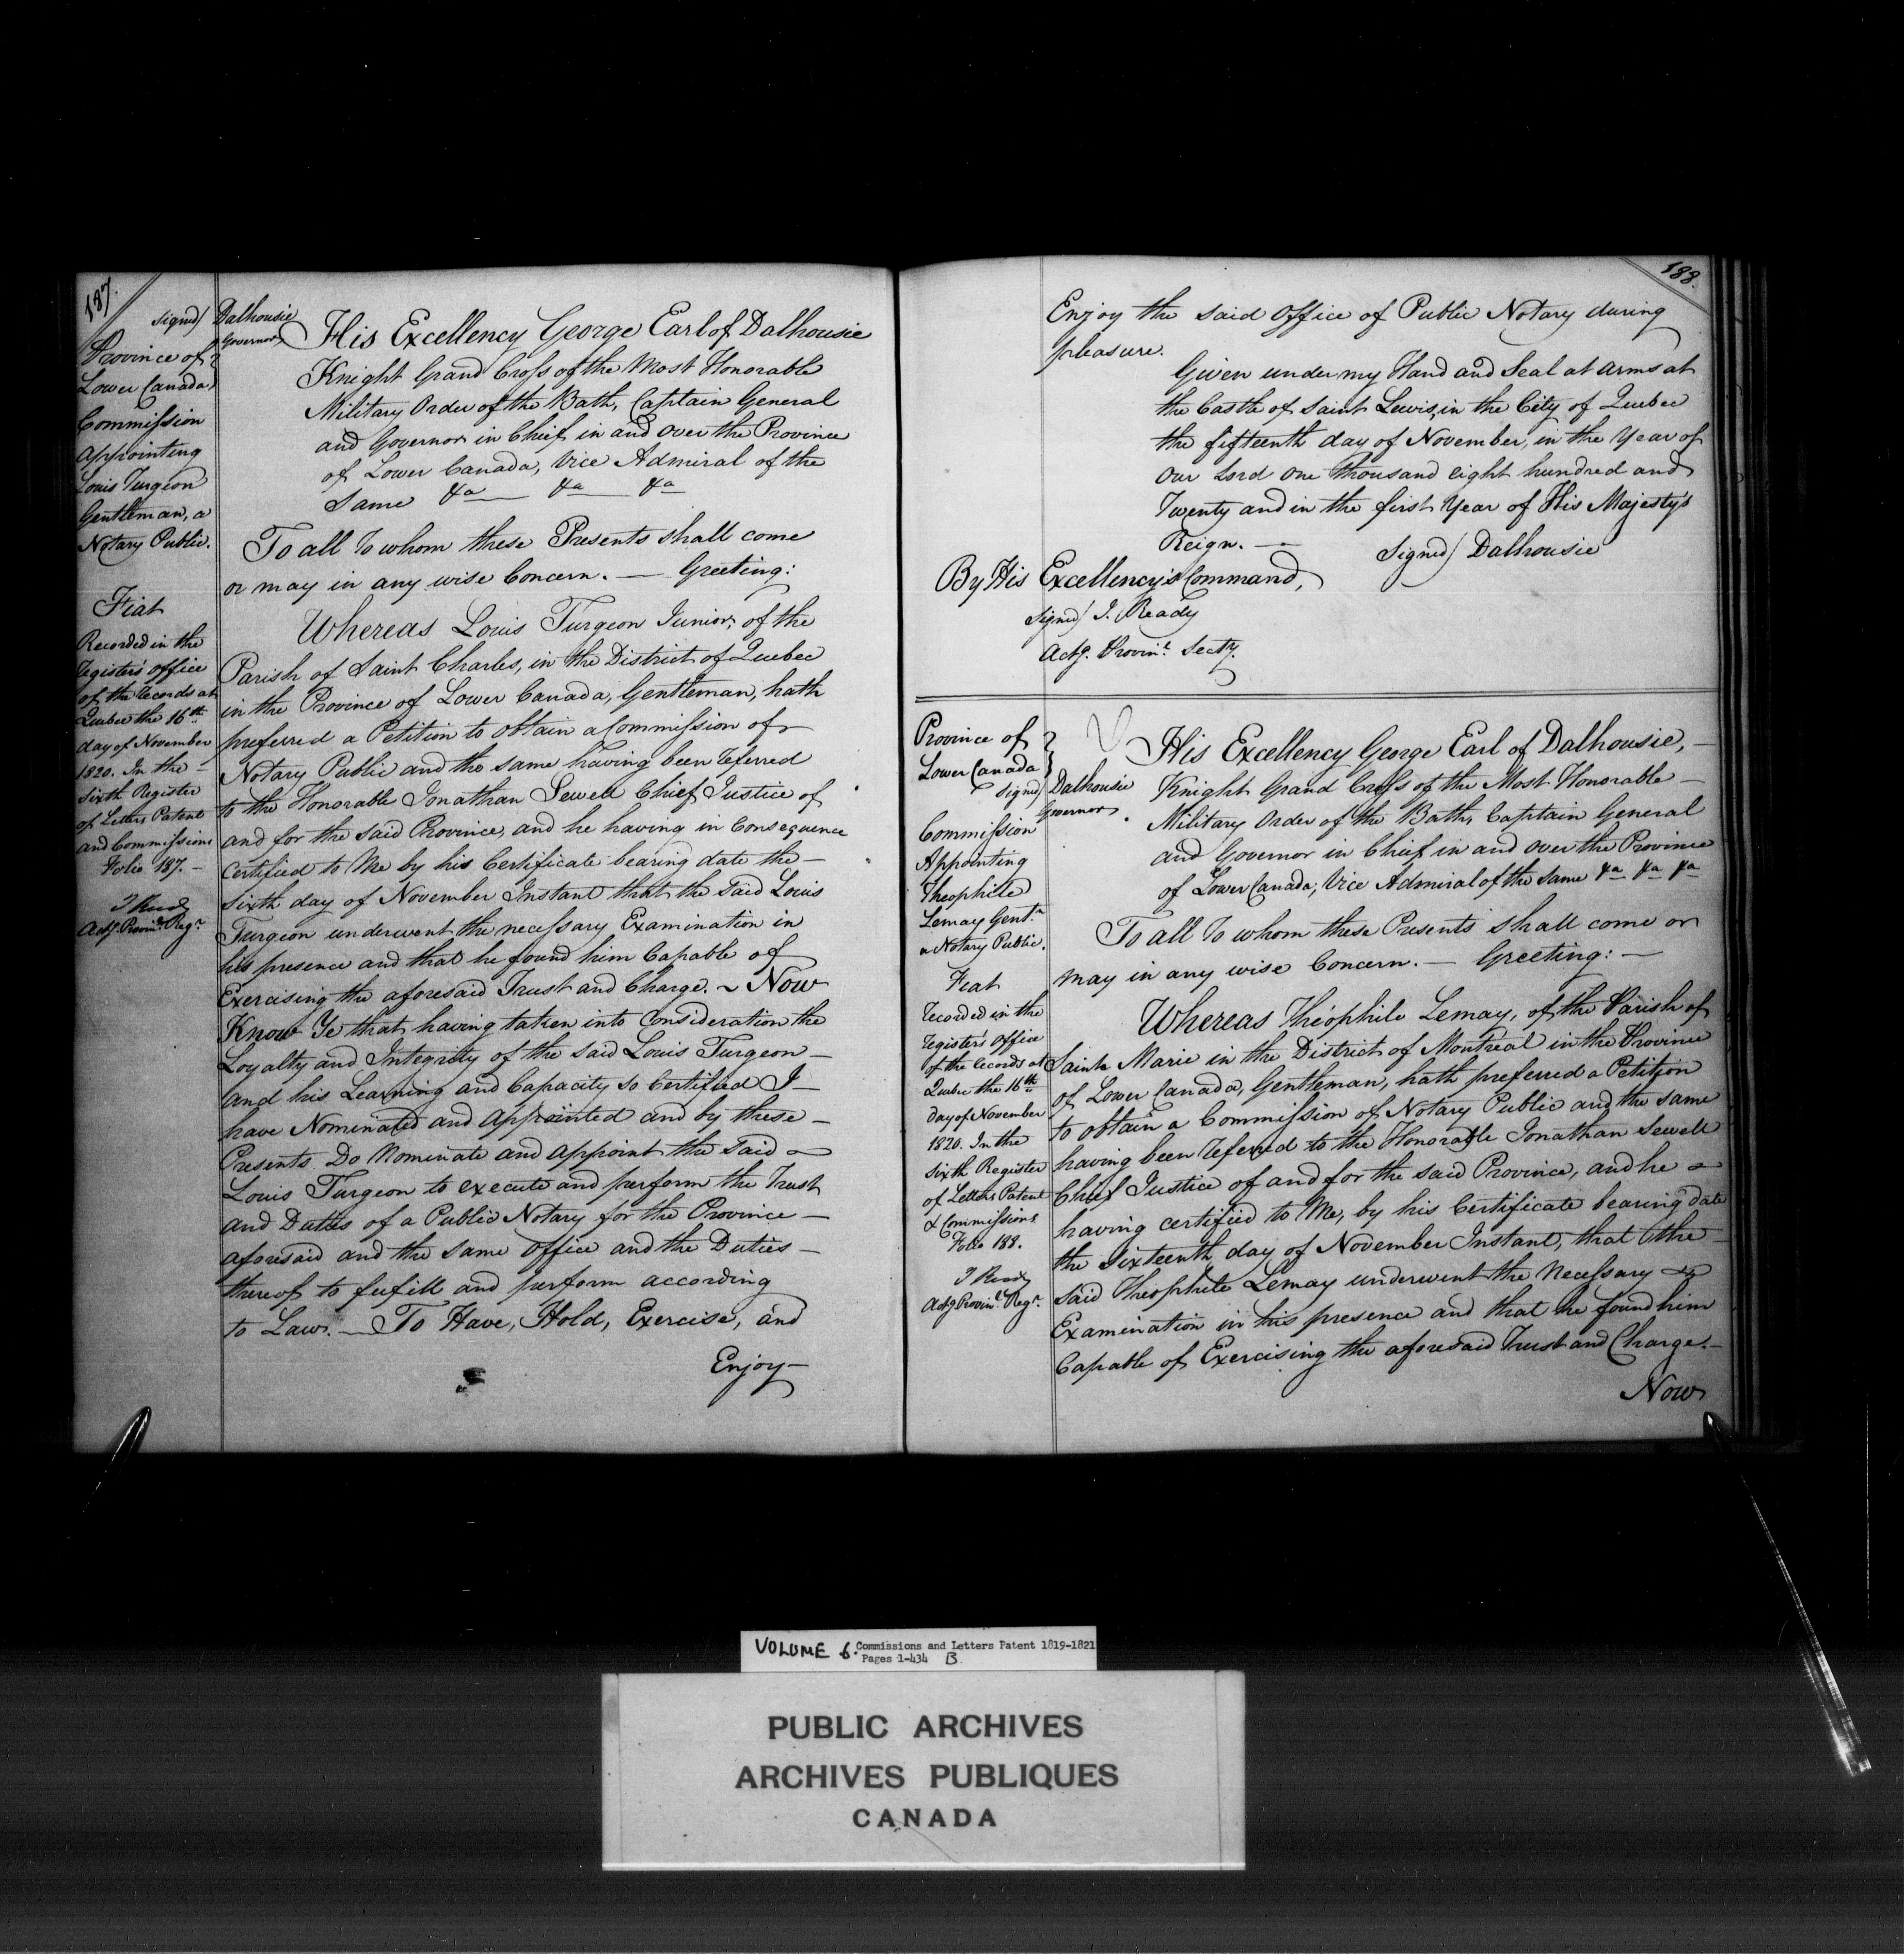 187.
Signd/ Dalhousie
Governor
Province of
Lower Canada
Commission
appointing
Louis Turgeon
Gentleman, a
Notary Public.
Fiat
Recorded in the
Registers office
of the Records at
Quebec the 16th
day of November
1820. In the —
Sixth Register
of Letters Patent
and Commissions
Folio 187. —
J Ready
Actg. Provinl. Regr.
His Excellency George Earl of Dalhousie
Knight Grand Cross of the Most Honorable
Military Order of the Bath, Captain General
and Governor in Chief in and over the Province
of Lower Canada, Vice Admiral of the
Same &a — &a — &a
To all to whom these Presents shall come
or may in any wise Concern. — Greeting:
Whereas Louis Turgeon Junior, of the
Parish of Saint Charles, in the District of Quebec
in the Province of Lower Canada, Gentleman, hath
preferred a Petition to obtain a Commission of
Notary Public and the same having been referred
to the Honorable Jonathan Sewell Chief Justice of
and for the said Province, and he having in Consequence
certified to Me by his Certificate bearing date the —
sixth day of November Instant that the said Louis
Turgeon underwent the necessary Examination in
his presence and that he found him Capable of
Exercising the aforesaid Trust and Charge. ~ Now
Know Ye that having taken into Consideration the
Loyalty and Integrity of the said Louis Turgeon —
and his Learning and Capacity so Certified I —
have Nominated and Appointed and by these —
Presents Do Nominate and Appoint the said —
Louis Turgeon to execute and perform the Trust
and Duties of a Public Notary for the Province —
aforesaid and the same Office and the Duties —
thereof to fulfill and perform according
to Law. — To Have, Hold, Exercise, and
Enjoy —
188.
Enjoy the said Office of Public Notary during
pleasure.
Given under my Hand and Seal at Arms at
the Castle of Saint Lewis, in the City of Quebec
the fifteenth day of November, in the Year of
Our Lord One thousand eight hundred and
Twenty and in the first Year of His Majesty's
Reign. — Signed/ Dalhousie
By His Excellency's Command,
Signed/ J. Ready
Actg. Provinl. Secty.
Province of
Lower Canada
Signd/ Dalhousie
Governor.
Commission
Appointing
Theophile
Lemay Gentn
a Notary Public.
Fiat
Recorded in the
Registers Office
of the Records at
Quebec the 16th
day of November
1820. In the
Sixth Register
of Letters Patent
& Commissions
Folio 188.
J Ready
Actg Provinl. Regr.
His Excellency George Earl of Dalhousie, —
Knight Grand Cross of the Most Honorable —
Military Order of the Bath, Captain General
and Governor in Chief in and over the Province
of Lower Canada, Vice Admiral of the same &a &a &a
To all to whom these Presents shall come or
may in any wise Concern. — Greeting: —
Whereas Théophile Lemay, of the Parish of
Sainte Marie in the District of Montreal in the Province
of Lower Canada, Gentleman, hath preferred a Petition
to obtain a Commission of Notary Public and the same
having been referred to the Honorable Jonathan Sewell
Chief Justice of and for the said Province, and he —
having certified to Me, by his Certificate bearing date
the Sixteenth day of November Instant, that the —
said Theophile Lemay underwent the Necessary —
Examination in his presence and that he found him
Capable of Exercising the aforesaid Trust and Charge. —
Now
VOLUME 6. Commissions and Letters Patent 1819-1821
Pages 1-434 B
PUBLIC ARCHIVES
ARCHIVES PUBLIQUES
CANADA